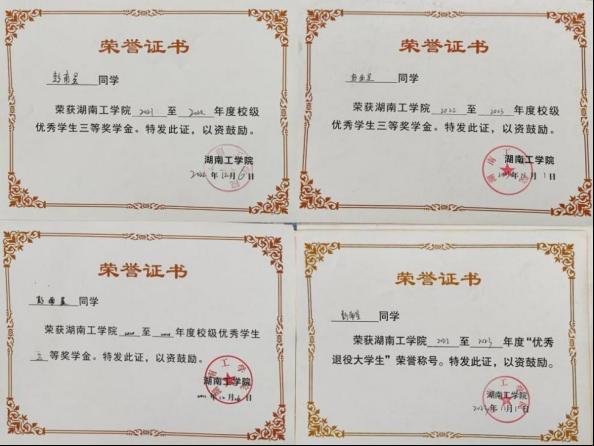 荣誉证书
同学
荣获湖南工学院 2021 至 2022 年度校级
优秀学生三等奖学金。特发此证，以资鼓励。
湖南工学院
2022 年 12 月 6 日
荣誉证书
同学
荣获湖南工学院 2022 至 2023 年度校级
优秀学生三等奖学金。特发此证，以资鼓励。
湖南工学院
年 月 1 日
荣誉证书
同学
荣获湖南工学院 至 年度校级优秀学生
三 等奖学金。特发此证，以资鼓励。
湖南工学院
年 月 日
荣誉证书
同学
荣获湖南工学院 2022 至 2023 年度“优秀
退役大学生”荣誉称号。特发此证，以资鼓励。
湖南工学院
年 月 日